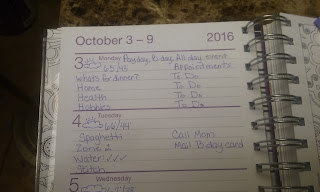 October 3 – 9 2016
3 Monday Payday, B.day, All day event
65/43 Appointments
What's for dinner? To Do
Home To Do
Health To Do
Hobbies To Do
4 Tuesday
66/44
Spaghetti Call Mom
Zone 2 Mail B.day card
Water ✓✓✓
Stitch
5 Wednesday